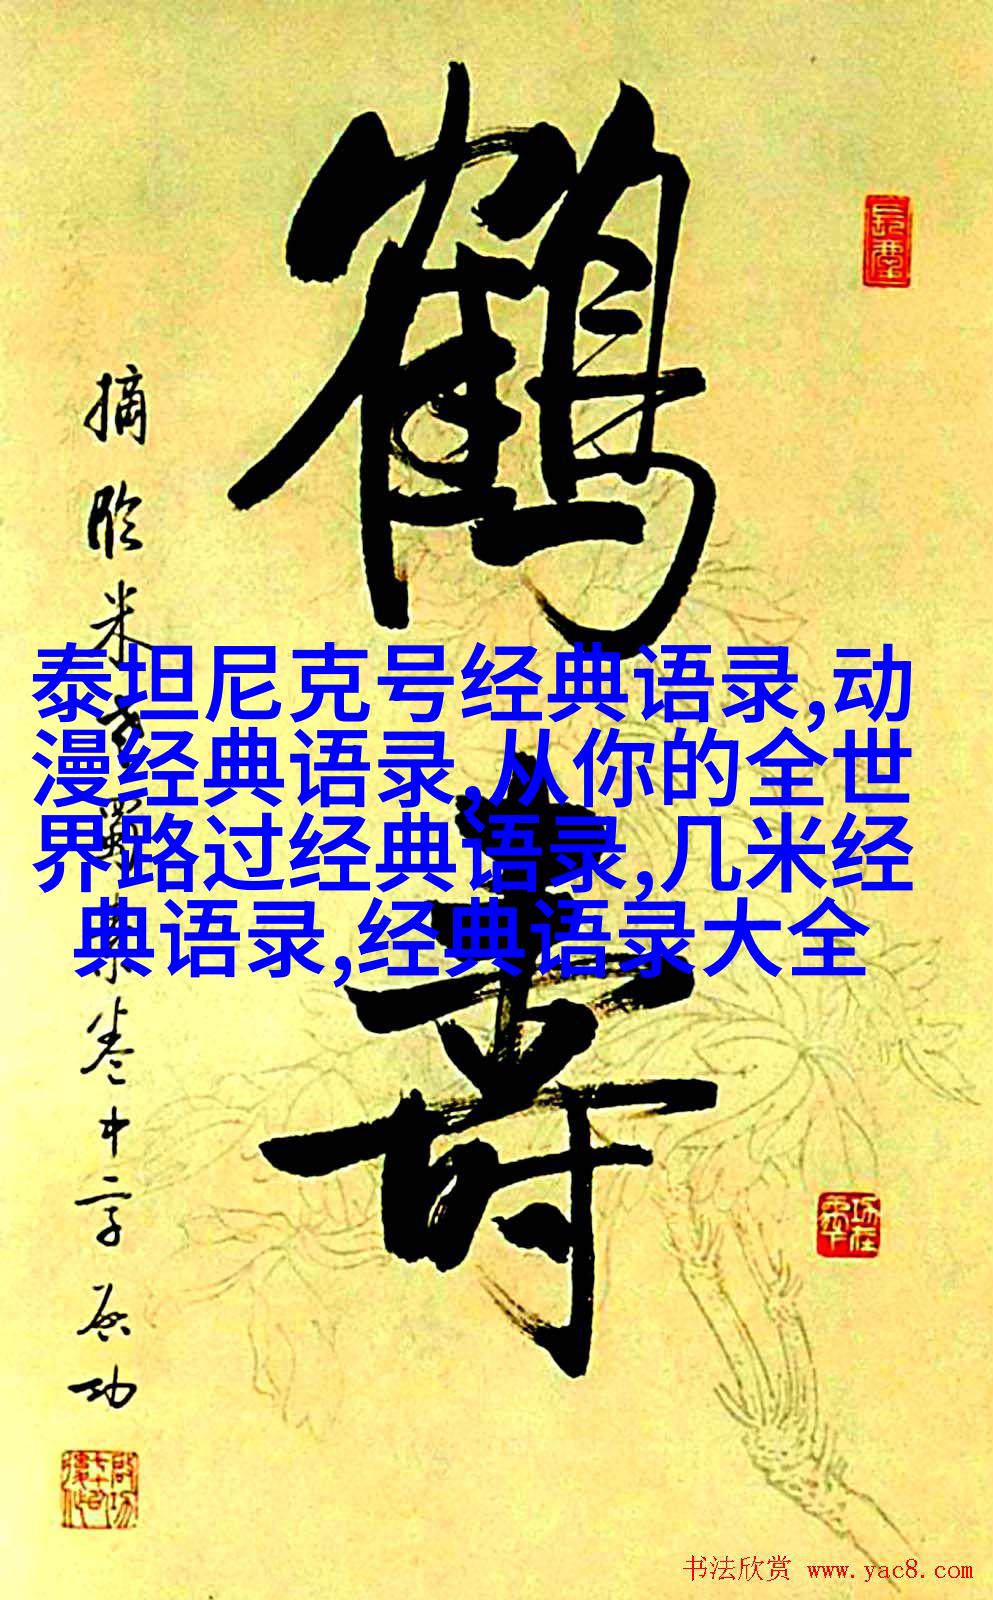 鹤寿
摘临米书蜀素卷中字 启功
泰坦尼克号经典语录,动
漫经典语录,从你的全世
界路过经典语录,几米经
典语录,经典语录大全
书法欣赏 www.yac8.com